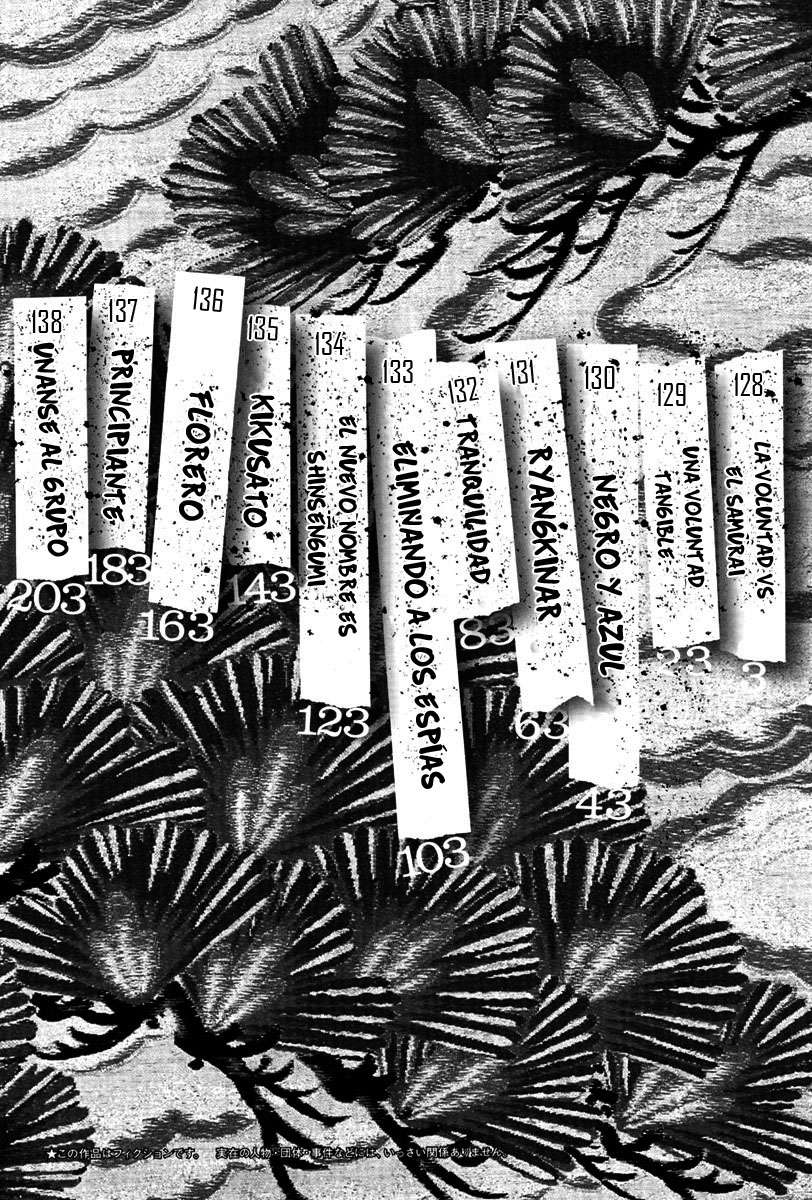 128
LA VOLUNTAD VS
EL SAMURAI
3
129
UNA VOLUNTAD
TANGIBLE
23
130
NEGRO Y AZUL
43
131
RYANGKINAR
63
132
TRANQUILIDAD
83
133
ELIMINANDO A LOS ESPÍAS
103
134
EL NUEVO NOMBRE ES
SHINSENGUMI
123
135
KIKUSATO
143
136
FLORERO
163
137
PRINCIPIANTE
183
138
UNANSE AL GRUPO
203
★この作品はフィクションです。 実在の人物・団体・事件などには、いっさい関係ありません。